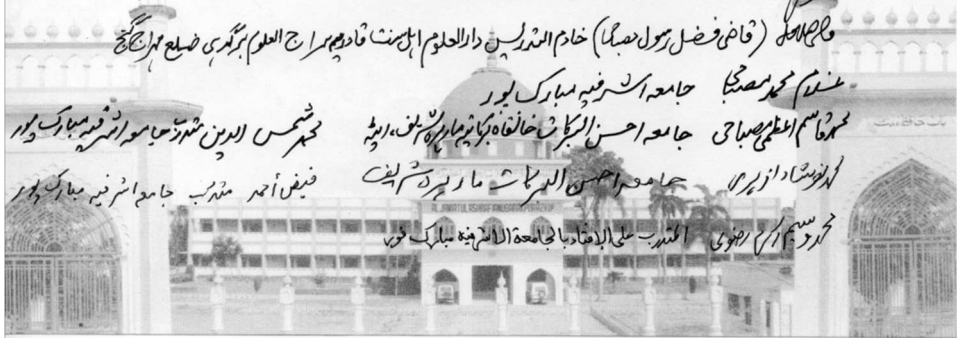 (قاضی فضل رسول مصباحی) خادم التدریس دارالعلوم اہل سنت قادریہ سراج العلوم برگدہی ضلع مہراج گنج
غلام محمد مصباحی جامعہ اشرفیہ مبارک پور
محمد قاسم اعظمی مصباحی جامعہ احسن البرکات خانقاہ برکاتیہ مارہرہ شریف، ایٹہ محمد شمس الدین متدرب جامعہ اشرفیہ مبارک پور
محمد نوشاد ازہری جامعہ احسن البرکات مارہرہ شریف فیض احمد متدرب جامعہ اشرفیہ مبارک پور
محمد وسیم اکرم رضوی المتدرب علی الافتاء بالجامعة الاشرفیه مبارک فور
AL JAMIATUL ASHRAFIA MUBARAKPUR